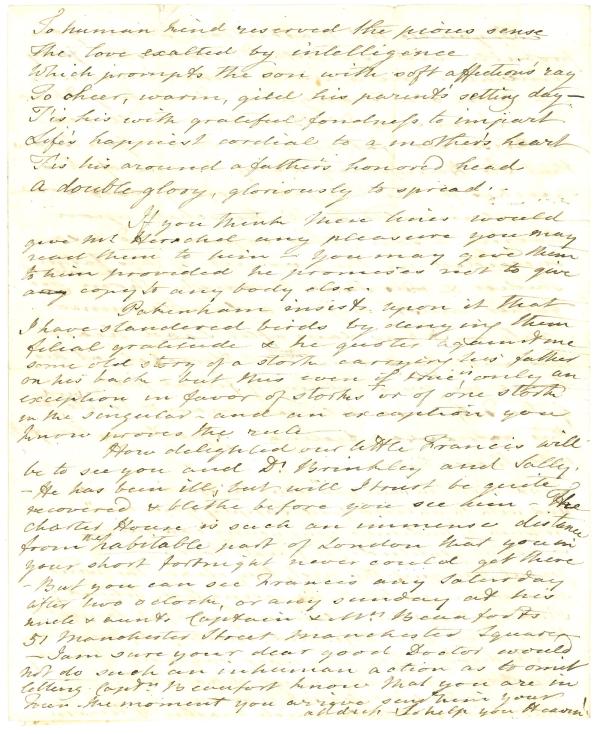 To human kind reserved the pious sense
The love exalted by intelligence
Which prompts the son with soft affection's ray
To cheer, warm, gild his parent's setting day—
T'is his with grateful fondness to impart
Life's happiest cordial to a mother's heart
T'is his around a father's honored head
A double glory, gloriously to spread. -
If you think these lines would
give Mr Herschel any pleasure you may
read them to him - You may give them
to him provided he promises not to give
any copy to any body else.
Pakenham insists upon it that
I have slandered birds by denying them
filial gratitude & he quotes against me
some old story of a stork carrying his father
on his back - but this even if true is only an
exception in favor of storks or of one stork
in the singular - and an exception you
know proves the rule
How delighted our little Francis will
be to see you and Dr Brinkley and Sally.
- He has been ill, but will I trust be quite
recovered & blithe before you see him - The
Charter House is such an immense distance
from the habitable part of London that you in
your short fortnight never could get there
- But you can see Francis any Saturday
after two o clock, or any sunday at his
uncle & aunts Captain & Mrs Beauforts
51 Manchester Street Manchester Square
- I am sure your dear good Doctor would
not do such an inhuman action as to omit
letting Captn Beaufort know that you are in
Town the moment you arrive send him your
address So help you Heaven!